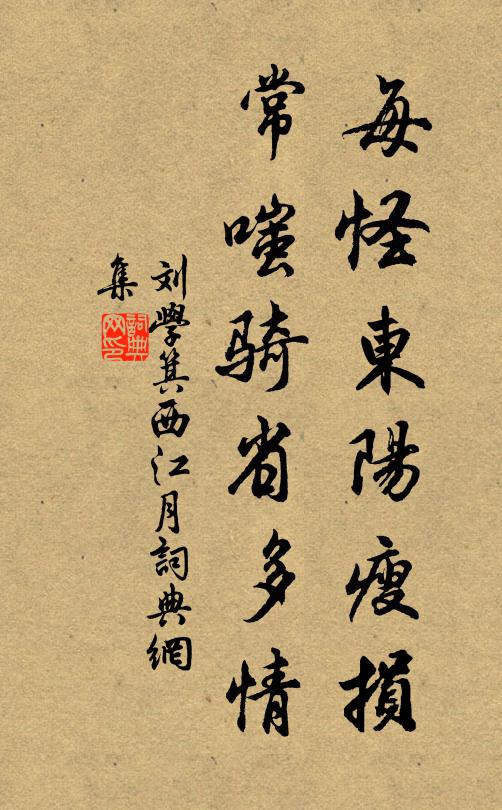 每怪東陽瘦損
常嗤骑省多情
刘學箕西江月詞典網
集
詞典
网印